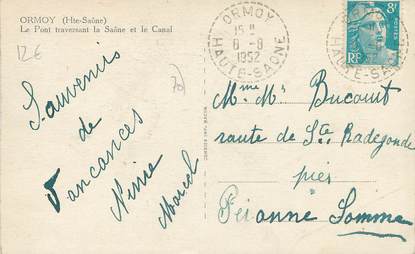 ORMOY (Hte-Saône)
Le Pont traversant la Saône et le Canal
12€
Souvenirs
de
Vancances
Ninie
Marcel
ORMOY
15 H
8 -8
1952
HAUTE-SAONE
8F
POSTES
RF
Mme Mr Bucourt
route de Ste Radegonde
près
Péronne Somme